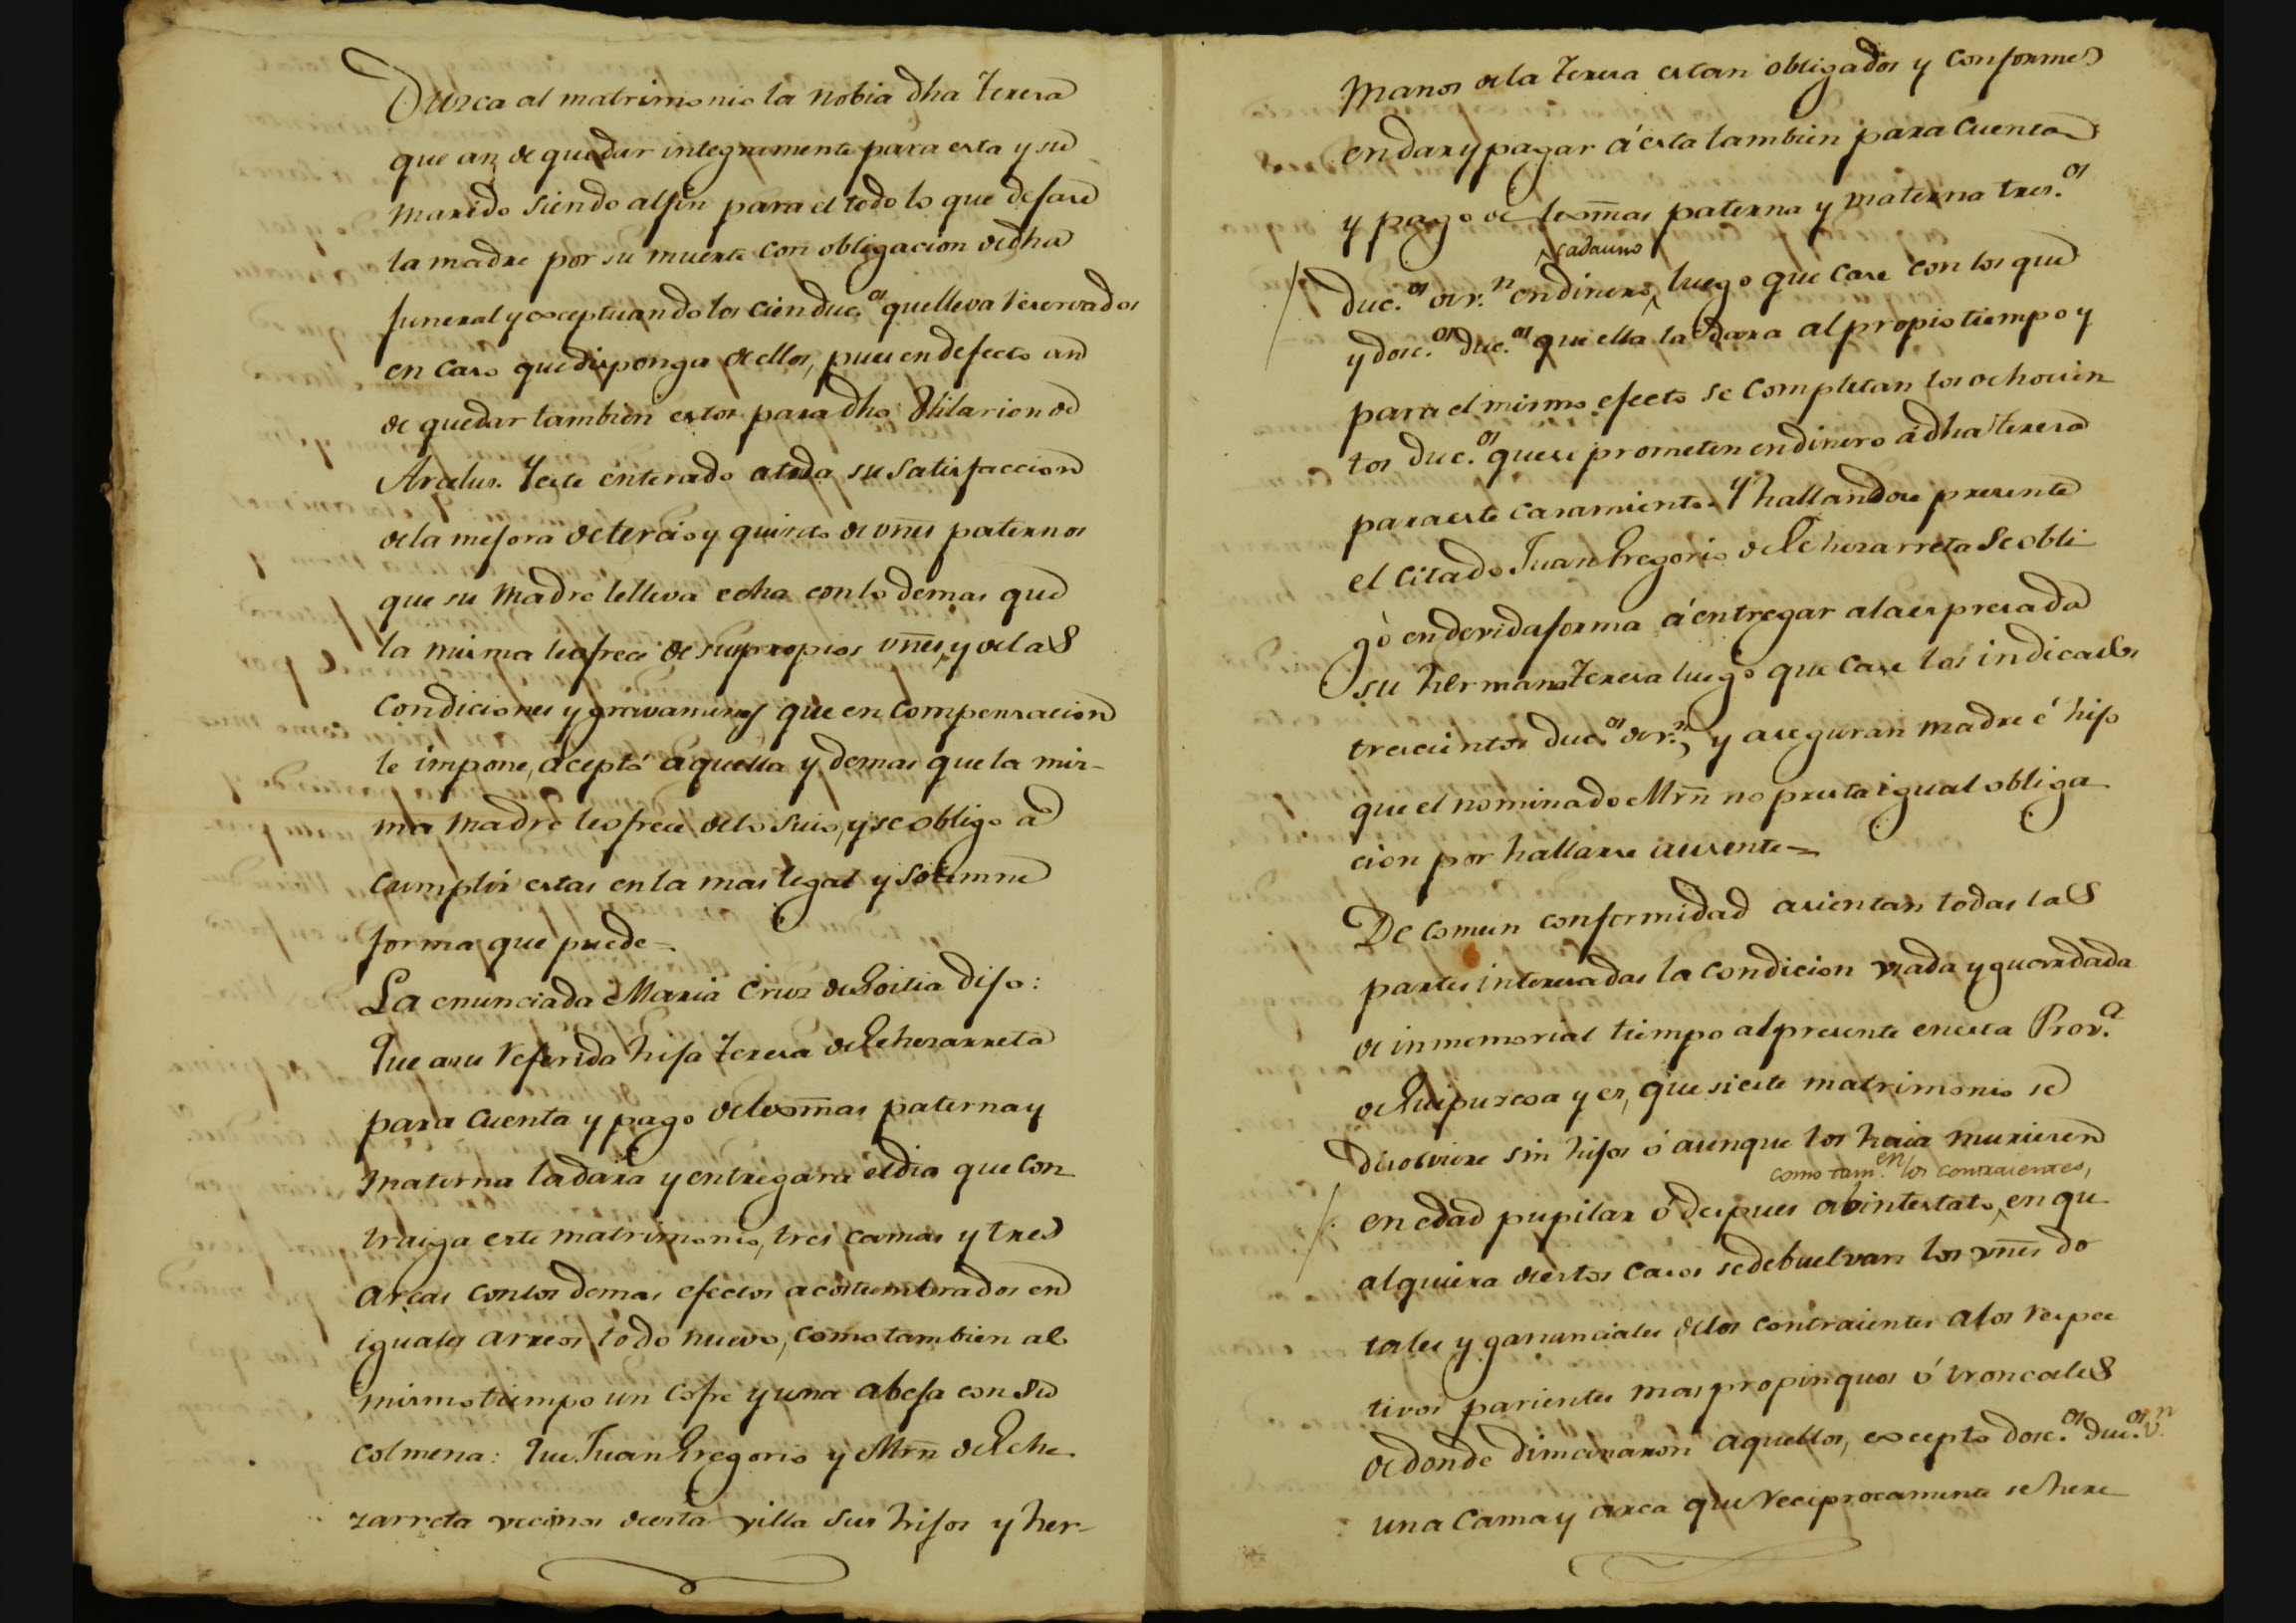 Dusca al matrimonio la nobia dha Teresa
que an de quedar integramente para esta y su
marido siendo alfin para el todo lo que dejare
la madre por su muerte con obligacion de dha
funeral y exceptuando los cien duc.os que lleva reservados
en caso que disponga de ellos, pues en defecto an
de quedar tambien estos para dho Hilarion de
Arcelus. Y este enterado a toda su satisfaccion
de la mejora de tercio y quinto de vñes paternos
que su madre le lleva echa con lo demas que
la misma le ofrece de sus propios vñes, y de las
condiciones y gravamenes que en compensacion
le impone, aceptó aquella y demas que la mis-
ma madre le ofrece de lo suio, y se obligo a
cumplir estas en la mas legal y solemne
forma que puede=.
La enunciada Maria Cruz de Goitia dijo:
Que a su referida hija Teresa de Echezarreta
para cuenta y pago de lexmas paterna y
materna la dara y entregara el dia que con
traiga este matrimonio, tres camas y tres
arcas con los demas efectos acostumbrados en
iguales arreos todo nuevo, como tambien al
mismo tiempo un cofre y una abeja con su
colmena: Que Juan Gregorio y Mrñ de Eche-
zarreta vecinos de esta villa sus hijos y her-
manos de la Teresa estan obligados y conformes
en dar y pagar á esta tambien para cuenta
y pago de lexmas paterna y materna tres.os
cadauno
duc.os de r.n en dinero, luego que case con los que
y dosc.os duc.os que ella la dara al propio tiempo y
para el mismo efecto se completan los ochocien
tos duc.os que se prometen en dinero á dha Teresa
para este casamiento. Y hallandose presente
el citado Juan Gregorio de Echezarreta se obli-
gó en devida forma á entregar a la espresada
su hermana Teresa luego que case los indicados
trescientos duc.os de r.n, y aseguran madre é hijo
que el nominado Mrñ no presta igual obliga
cion por hallarse ausente=
De comun conformidad asientan todas las
partes interesadas la condicion usada y guardada
de inmemorial tiempo al presente en esta Prov.a
de Guipuzcoa y es, que si este matrimonio se
disolviere sin hijos ó aunque los haia murieren
como tam.en los contraientes,
en edad pupilar ó despues abintestato, en qu
alquiera de estos casos se debuelvan los vñes do
tales y gananciales de los contraientes a los respec
tivos parientes mas propinquos ó troncales
de donde dimanaron aquellos, excepto dosc.os duc.os v.n
una cama y arca que reciprocamente se here